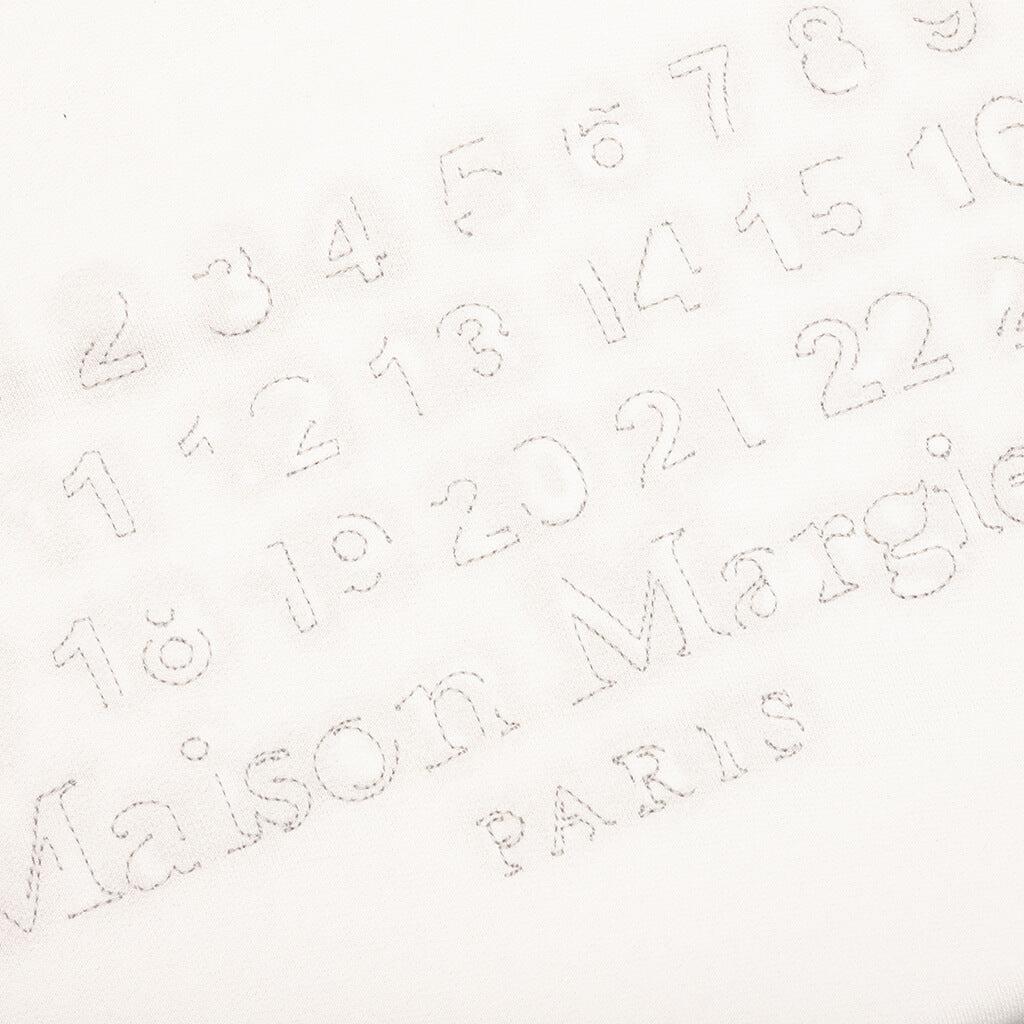 2 3 4 5 6 7 8 9
11 12 13 14 15 16
18 19 20 21 22
Maison Margie
PARIS